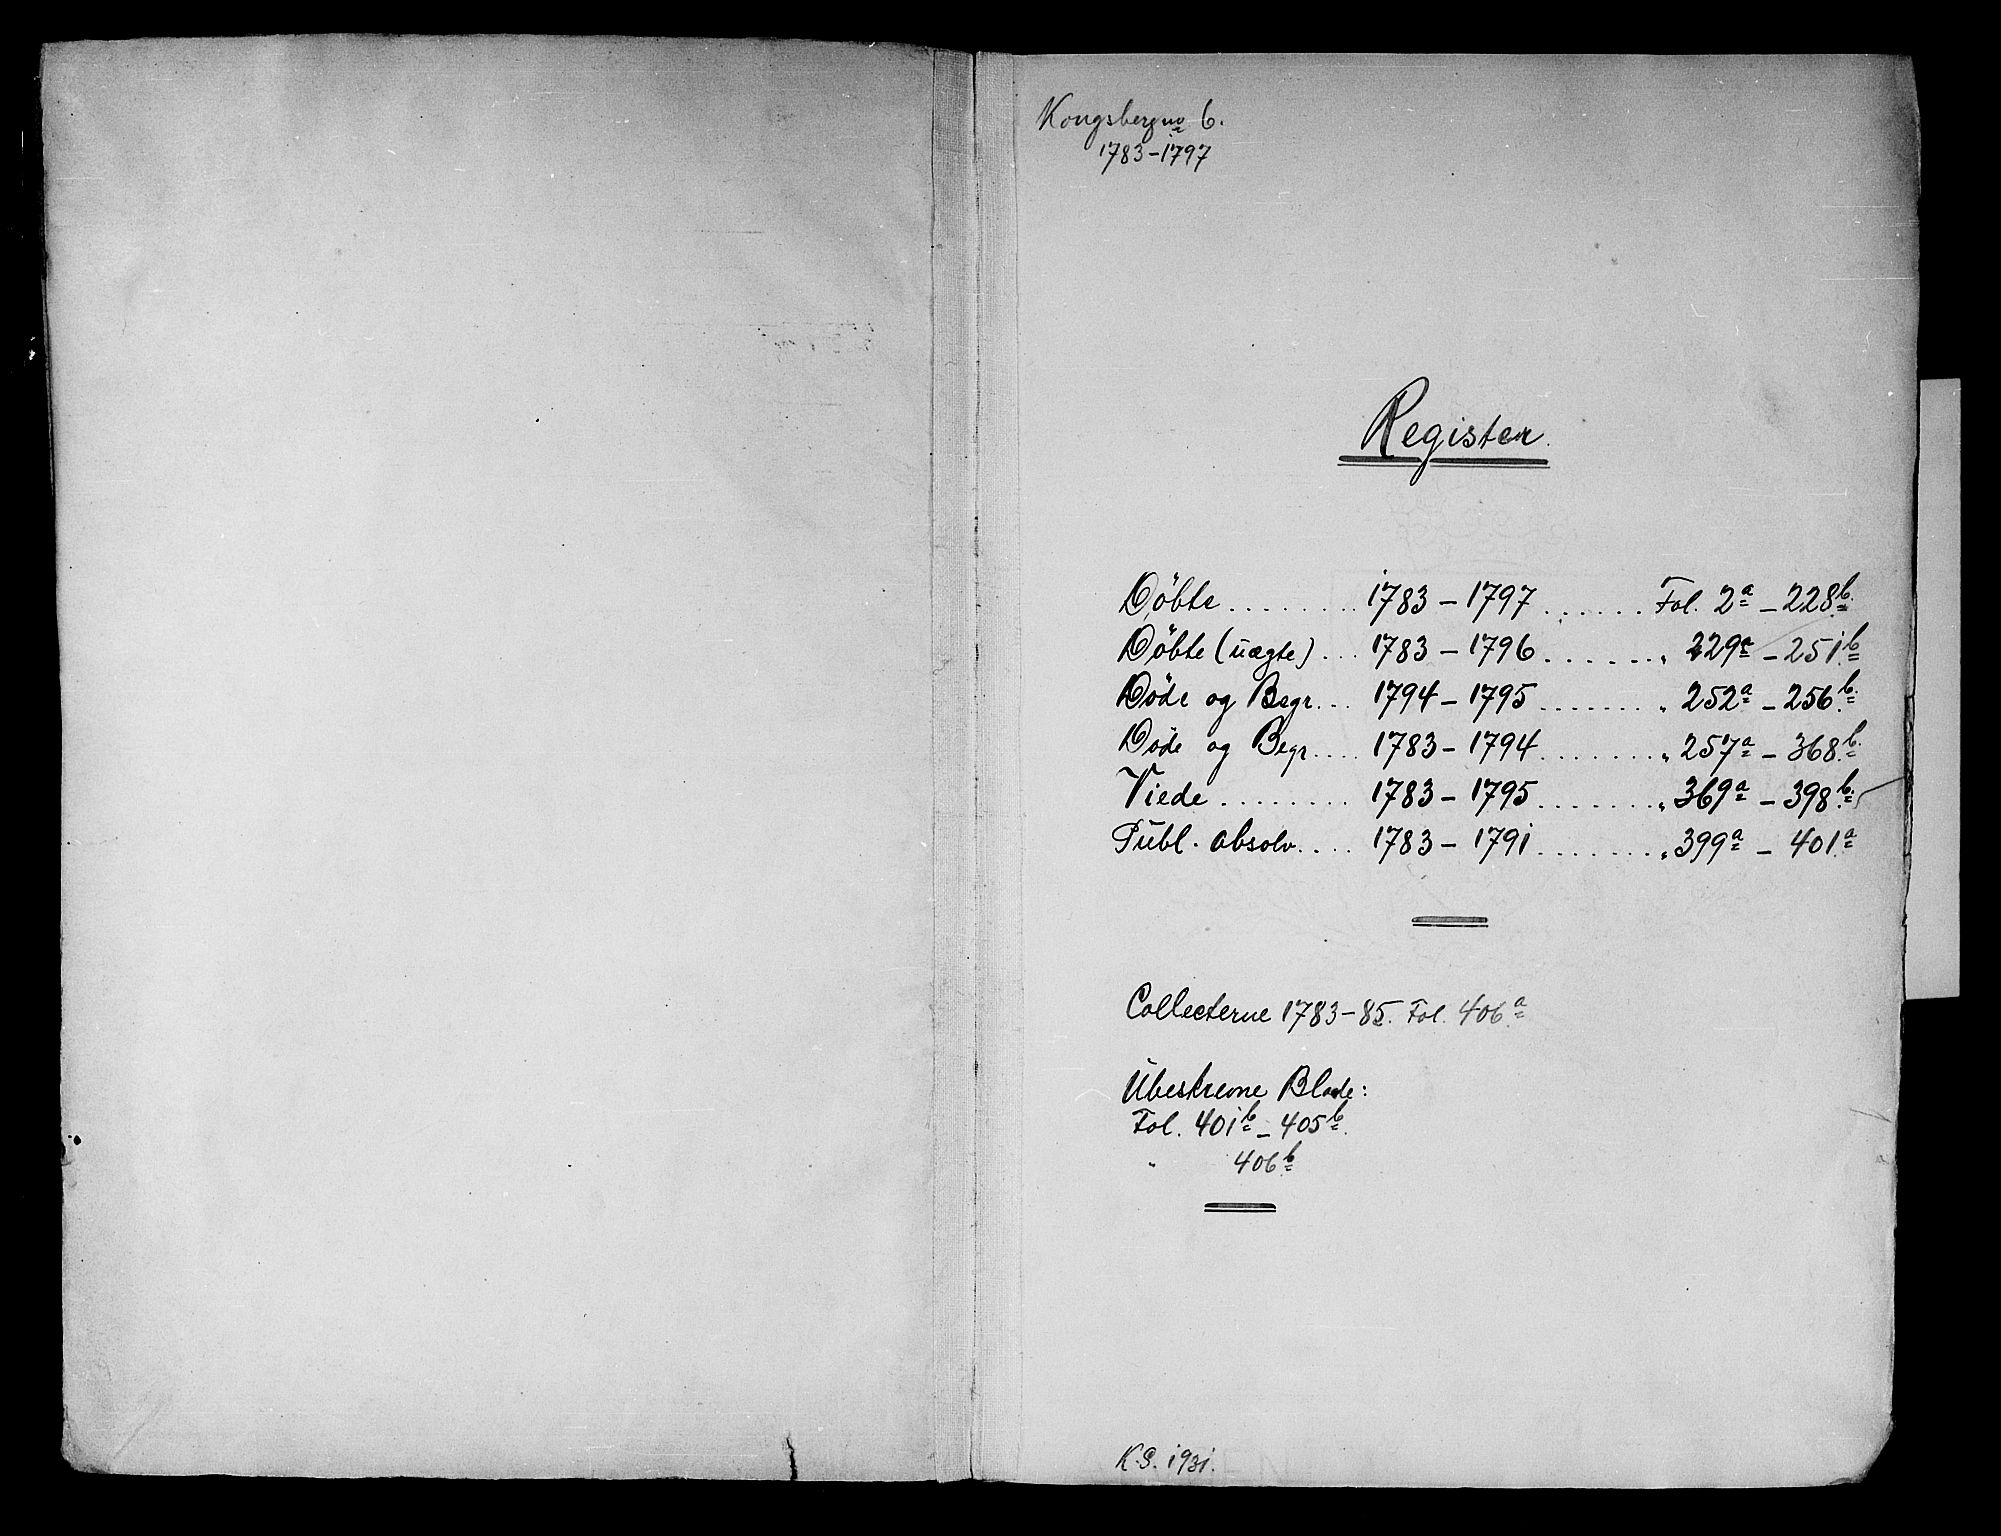 Kongsberg no 6.
1783-1797
Register.
Döbte ........ 1783 - 1797 ...... Fol. 2a - 228b.
Döbte (uægte) ... 1783 - 1796 ....... " 229a - 251b
Döde og Begr. ... 1794 - 1795 ....... " 252a - 256b.
Döde og Begr. ... 1783 - 1794 ....... " 257a - 368b.
Viede ........ 1783 - 1795 ....... " 369a - 398b.
Publ. absolv. ... 1783 - 1791 ....... " 399a - 401a
Collecterne 1783-85. Fol. 406a
Ubeskrevne Blade:
Fol. 401b - 405b.
" 406b
K.S. 1931.